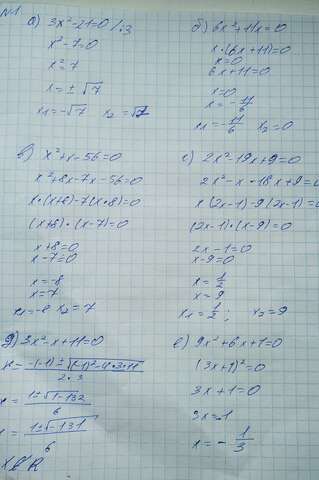 №1
а) 3x²-21=0 /:3
x²-7=0
x²=7
x=±√7
x1=-√7 x2=√7
б) 6x²+11x=0
x·(6x+11)=0
x=0
6x+11=0
x=0
x=-11/6
x1=-11/6 x2=0
в) x²+x-56=0
x²+8x-7x-56=0
x·(x+8)-7(x+8)=0
(x+8)·(x-7)=0
x+8=0
x-7=0
x=-8
x=7
x1=-8 x2=7
с) 2x²-19x+9=0
2x²-x-18x+9=0
x(2x-1)-9(2x-1)=0
(2x-1)·(x-9)=0
2x-1=0
x-9=0
x=1/2
x=9
x1=1/2; x2=9
д) 3x²-x+11=0
x=-(-1)±√(-1)²-4·3·11/2·3
x=1±√1-132/6
x=1±√-131/6
x∉R
е) 9x²+6x+1=0
(3x+1)²=0
3x+1=0
3x=-1
x=-1/3